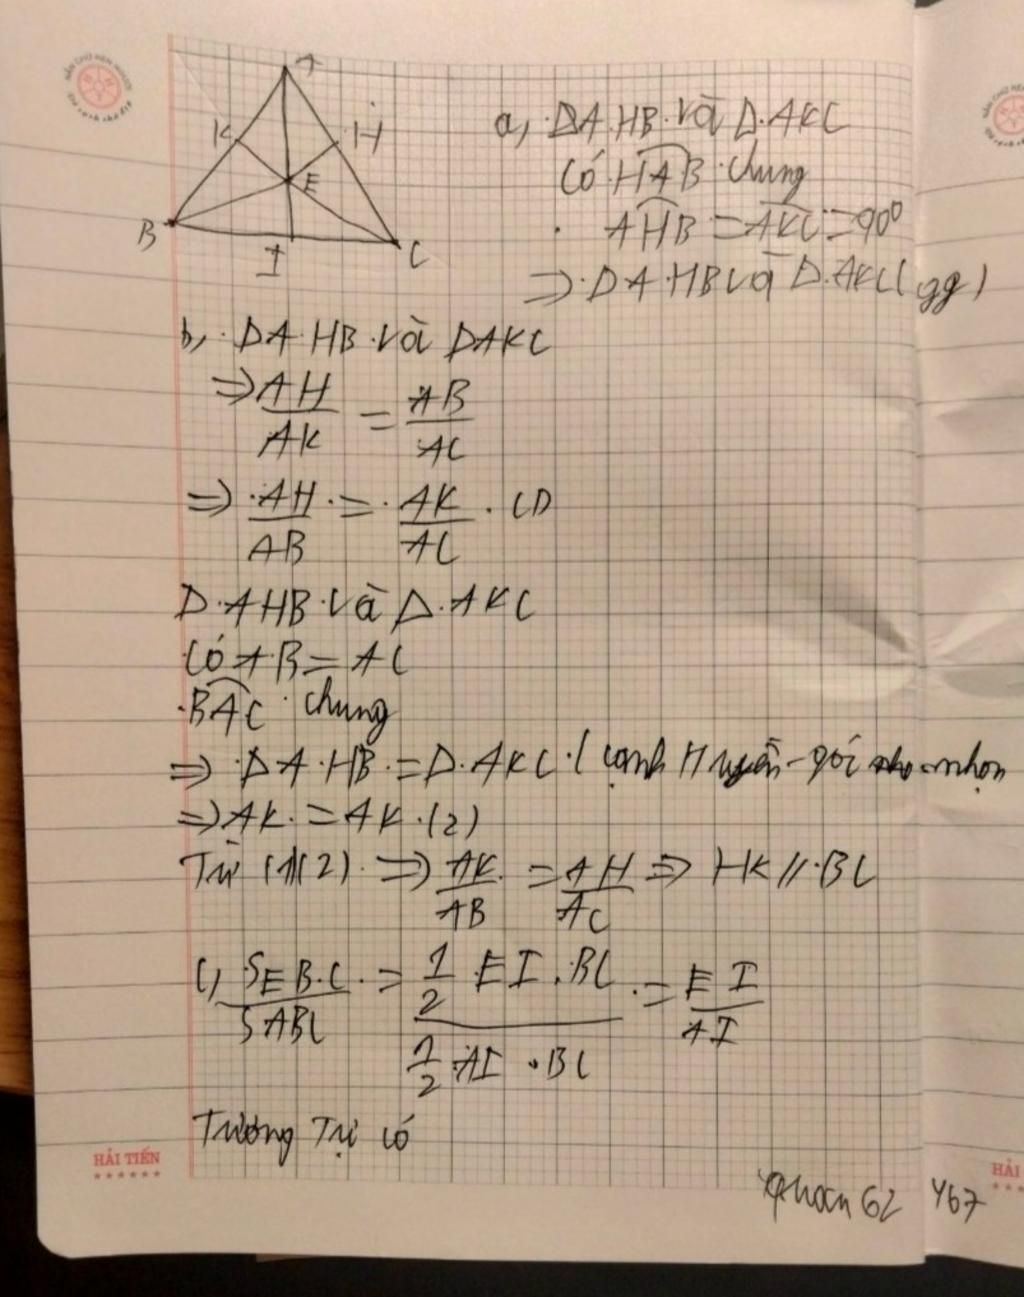 A
K
H
E
B
I
C
a, ΔAHB và Δ.AKC
Có HAB chung
AHB = AKC = 90⁰
=> ΔAHB và Δ.AKC (gg)
b, ΔAHB và ΔAKC
=> AH/AK = AB/AC
=> AH/AB = AK/AC . (1)
Δ.AHB và Δ.AKC
Có AB = AC
BAC chung
=> ΔAHB = Δ.AKC (cạnh Huyền - góc nhọn
=> AK = AK (2)
Từ (1)(2) => AK/AB = AH/AC => HK // BC
c, SEBC/SABC = 1/2 EI.BC / 1/2 AI.BC = EI/AI
Tương Tự có
HẢI TIẾN
62
467
HẢI